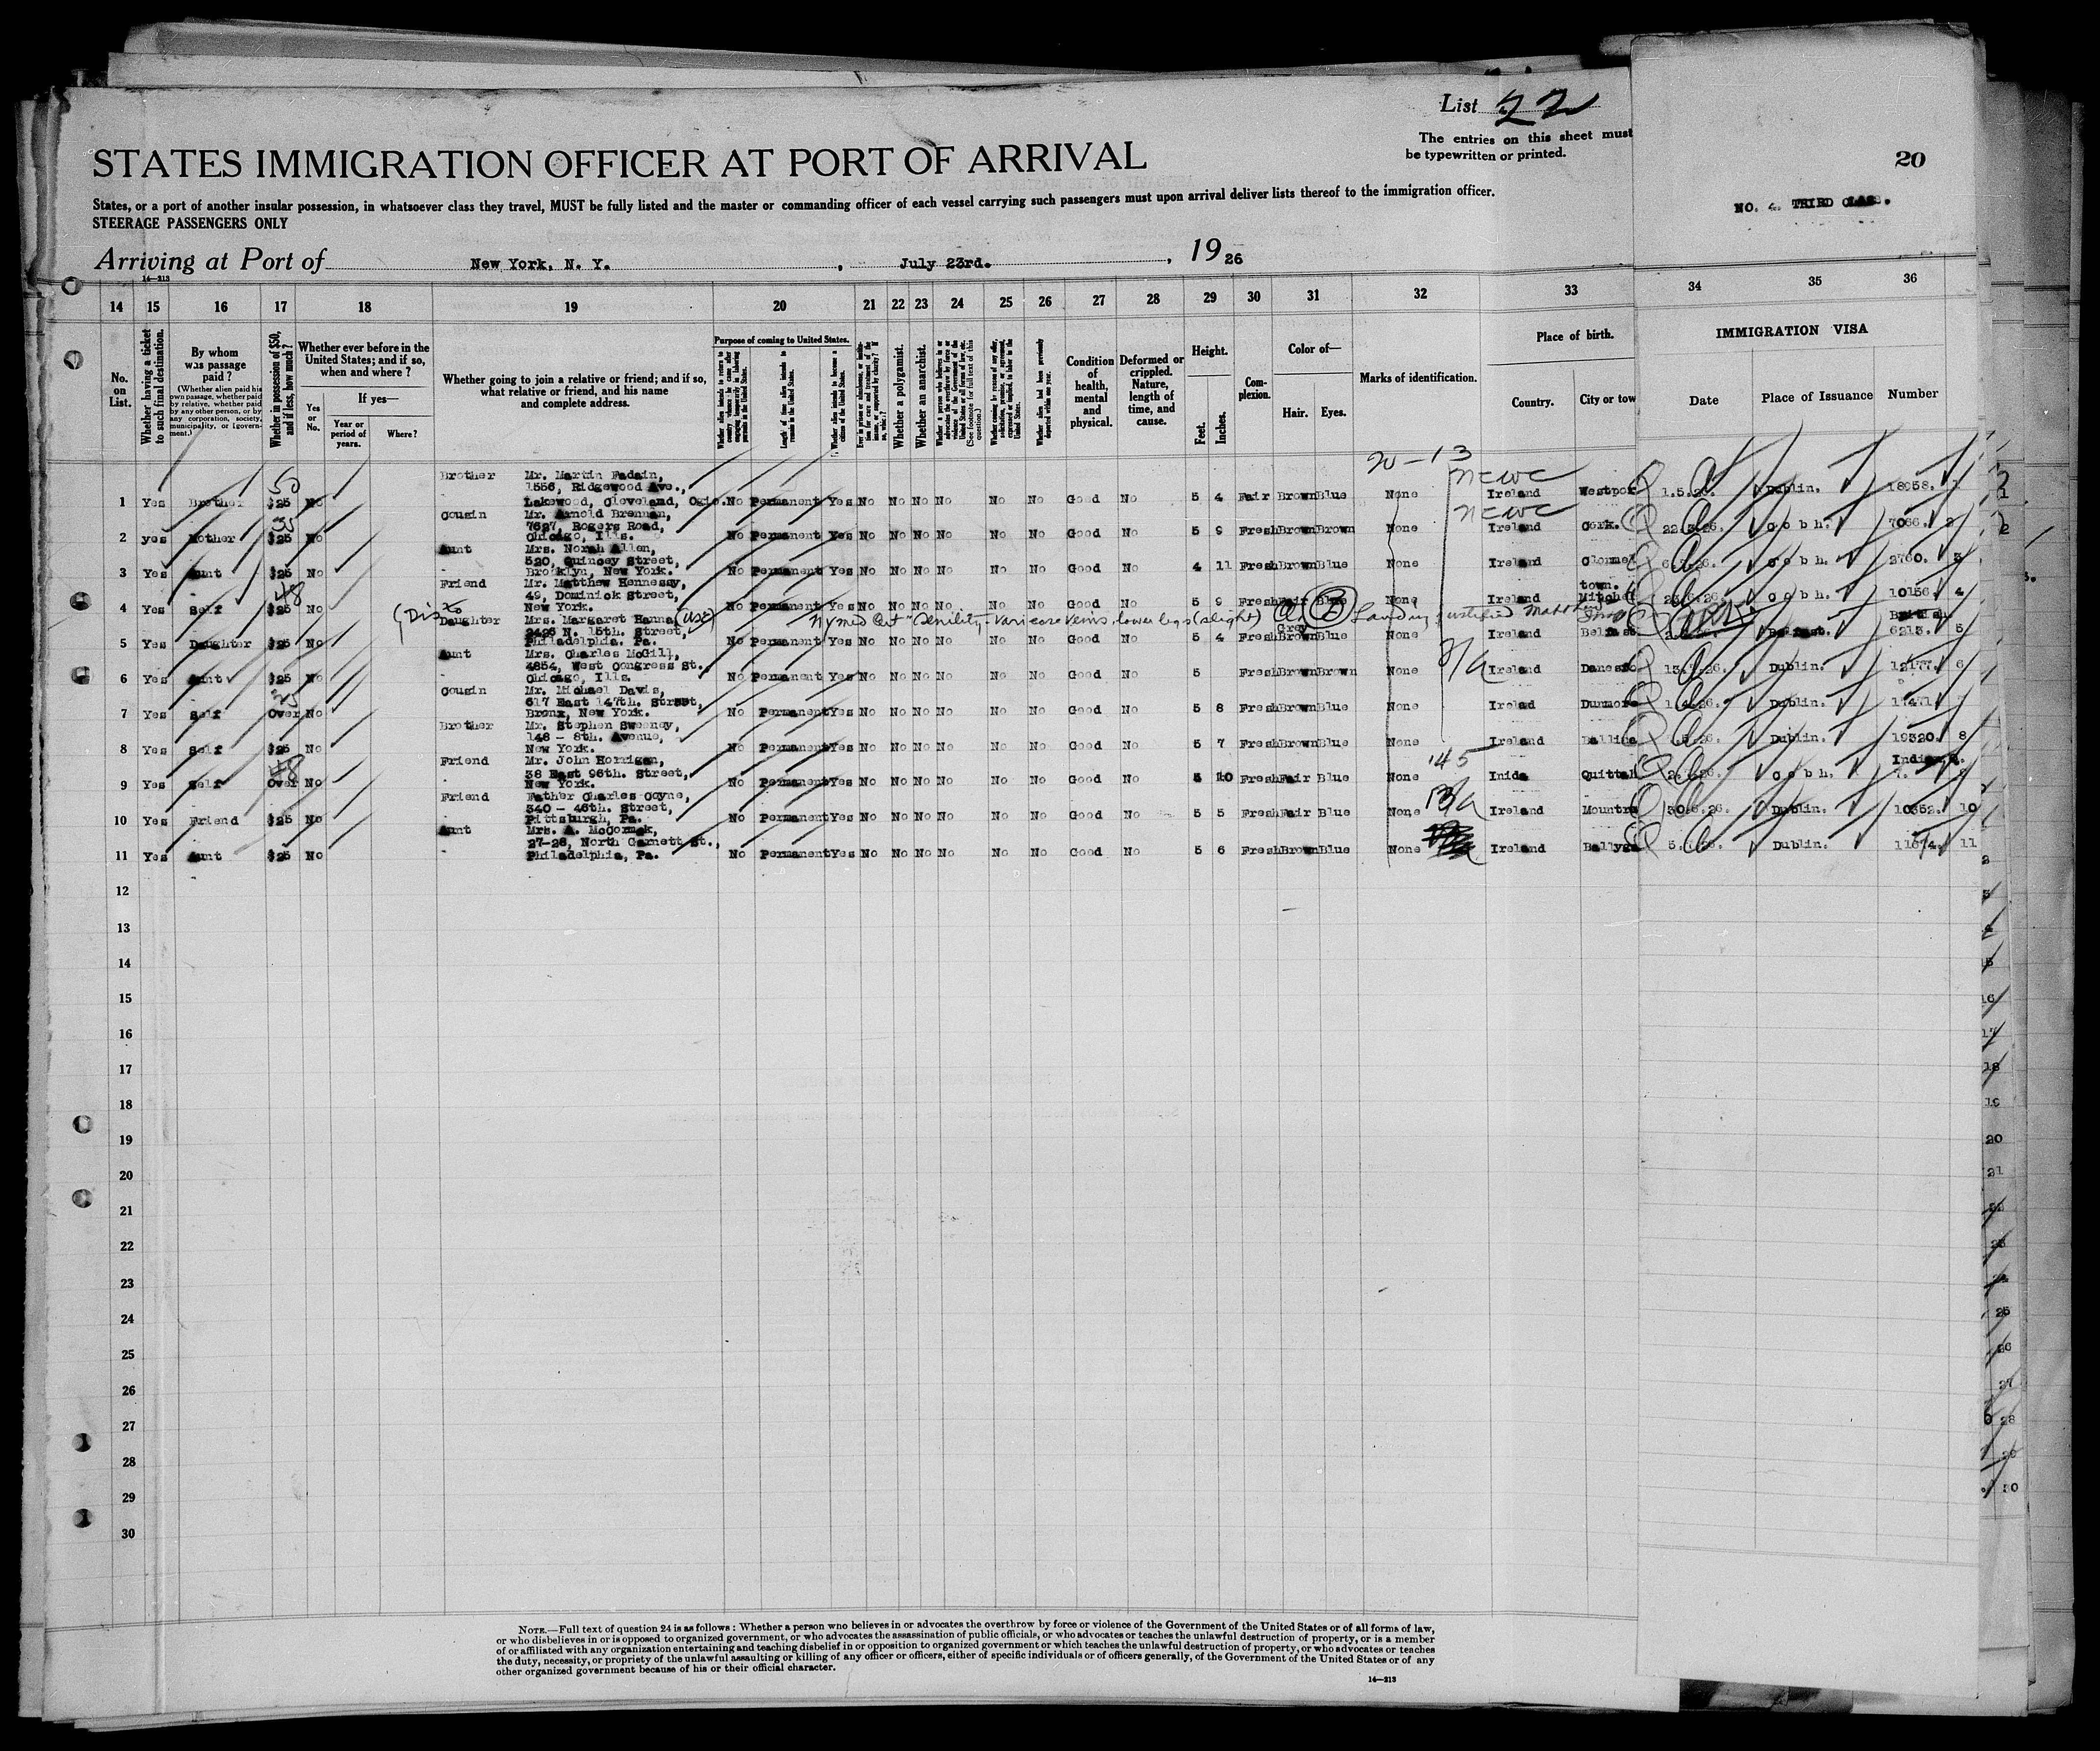 List 22
The entries on this sheet must
be typewritten or printed.
20
NO. 4. THIRD CLASS.
STATES IMMIGRATION OFFICER AT PORT OF ARRIVAL
States, or a port of another insular possession, in whatsoever class they travel, MUST be fully listed and the master or commanding officer of each vessel carrying such passengers must upon arrival deliver lists thereof to the immigration officer.
STEERAGE PASSENGERS ONLY
Arriving at Port of New York, N. Y., July 23rd., 1926
14—213
14 15 16 17 18 19 20 21 22 23 24 25 26 27 28 29 30 31 32 33 34 35 36
No. on List.
Whether having a ticket to such final destination.
By whom was passage paid?
(Whether alien paid his own passage, whether paid by relative, whether paid by any other person, or by any corporation, society, municipality, or government.)
Whether in possession of $50, and if less, how much?
Whether ever before in the United States; and if so, when and where?
Yes or No.
If yes—
Year or period of years.
Where?
Whether going to join a relative or friend; and if so, what relative or friend, and his name and complete address.
Purpose of coming to United States.
Length of time alien intends to remain in the United States.
Whether alien intends to become a citizen of the United States.
Whether a polygamist.
Whether an anarchist.
(See footnote for full text of this question.)
Condition of health, mental and physical.
Deformed or crippled. Nature, length of time, and cause.
Height.
Feet.
Inches.
Complexion.
Color of—
Hair.
Eyes.
Marks of identification.
Place of birth.
Country.
City or tow
IMMIGRATION VISA
Date
Place of Issuance
Number
20-13
50
Brother Mr. Martin Fadain, newc
1556, Ridgewood Ave.,
1 Yes Brother $25 No Lakewood, Cleveland, Ogio. No Permanent Yes No No No No No No Good No 5 4 Fair Brown Blue None Ireland Westpor 1.5.26. Dublin. 18058. 1
Cousin Mr. Arnold Brennan, newc
7627, Rogers Road,
2 yes Mother $25 No Chicago, Ills. No Permanent Yes No No No No No No Good No 5 9 Fresh Brown Brown None Ireland Cork. Cobh. 7066. 2
Aunt Mrs. Norah Allen,
520, Quincey Street,
3 Yes Aunt $25 No Brooklyn, New York. No Permanent Yes No No No No No No Good No 4 11 Fresh Brown Blue None Ireland Clonmel Cobh. 2760. 3
Friend Mr. Matthew Hennessy, town.
48
49, Dominick Street,
4 Yes Self $25 No New York. No Permanent Yes No No No No No No Good No 5 9 Fresh Fair Blue None Ireland Mitchel Cobh. 10156. 4
Daughter Mrs. Margaret Hanna, Med Cert "Senility - Varicose veins, lower legs (slight) British
2426 N. 15th. Street, Grey
5 Yes Daughter $25 No Philadelphia. Pa. No Permanent Yes No No No No No No Good No 5 4 Fresh Blue None Ireland Belfast Belfast. 6213. 5
Aunt Mrs. Charles McGill,
4854, West Congress St.
6 Yes Aunt $25 No Chicago, Ills. No Permanent Yes No No No No No No Good No 5 Fresh Brown Brown None Ireland Danesfo Dublin. 12177. 6
Cousin Mr. Michael Davis,
617 East 147th. Street,
7 Yes Self Over No Bronx, New York. No Permanent Yes No No No No No No Good No 5 8 Fresh Brown Blue None Irelad Dunmore Dublin. 7
Brother Mr. Stephen Sweeney,
148 - 8th. Avenue,
8 Yes Self $25 No New York. No Permanent Yes No No No No No No Good No 5 7 Fresh Brown Blue None Ireland Ballina Dublin. 19320. 8
Friend Mr. John Horrigan, 145
38 East 96th. Street,
9 Yes Self Over No New York. No Permanent Yes No No No No No No Good No 5 10 Fresh Fair Blue None Inida Quittah Cobh. 7.
Friend Father Charles Coyne,
340 - 46th. Street,
10 Yes Friend $25 No Pittsburgh, Pa. No Permanent Yes No No No No No No Good No 5 5 Fresh Fair Blue None Ireland Mountra Dublin. 10352. 10
Aunt Mrs. A. McCormak,
27-26, North Garnett St.,
11 Yes Aunt $25 No Philadelphia, Pa. No Permanent Yes No No No No No No Good No 5 6 Fresh Brown Blue None Ireland Ballyga Dublin. 11674. 11
12
13
14
15
16
17
18
19
20
21
22
23
24
25
26
27
28
29
30
NOTE.—Full text of question 24 is as follows: Whether a person who believes in or advocates the overthrow by force or violence of the Government of the United States or of all forms of law,
or who disbelieves in or is opposed to organized government, or who advocates the assassination of public officials, or who advocates or teaches the unlawful destruction of property, or is a member
of or affiliated with any organization entertaining and teaching disbelief in or opposition to organized government or which teaches the unlawful destruction of property, or who advocates or teaches
the duty, necessity, or propriety of the unlawful assaulting or killing of any officer or officers, either of specific individuals or of officers generally, of the Government of the United States or of any
other organized government because of his or their official character.
14—213